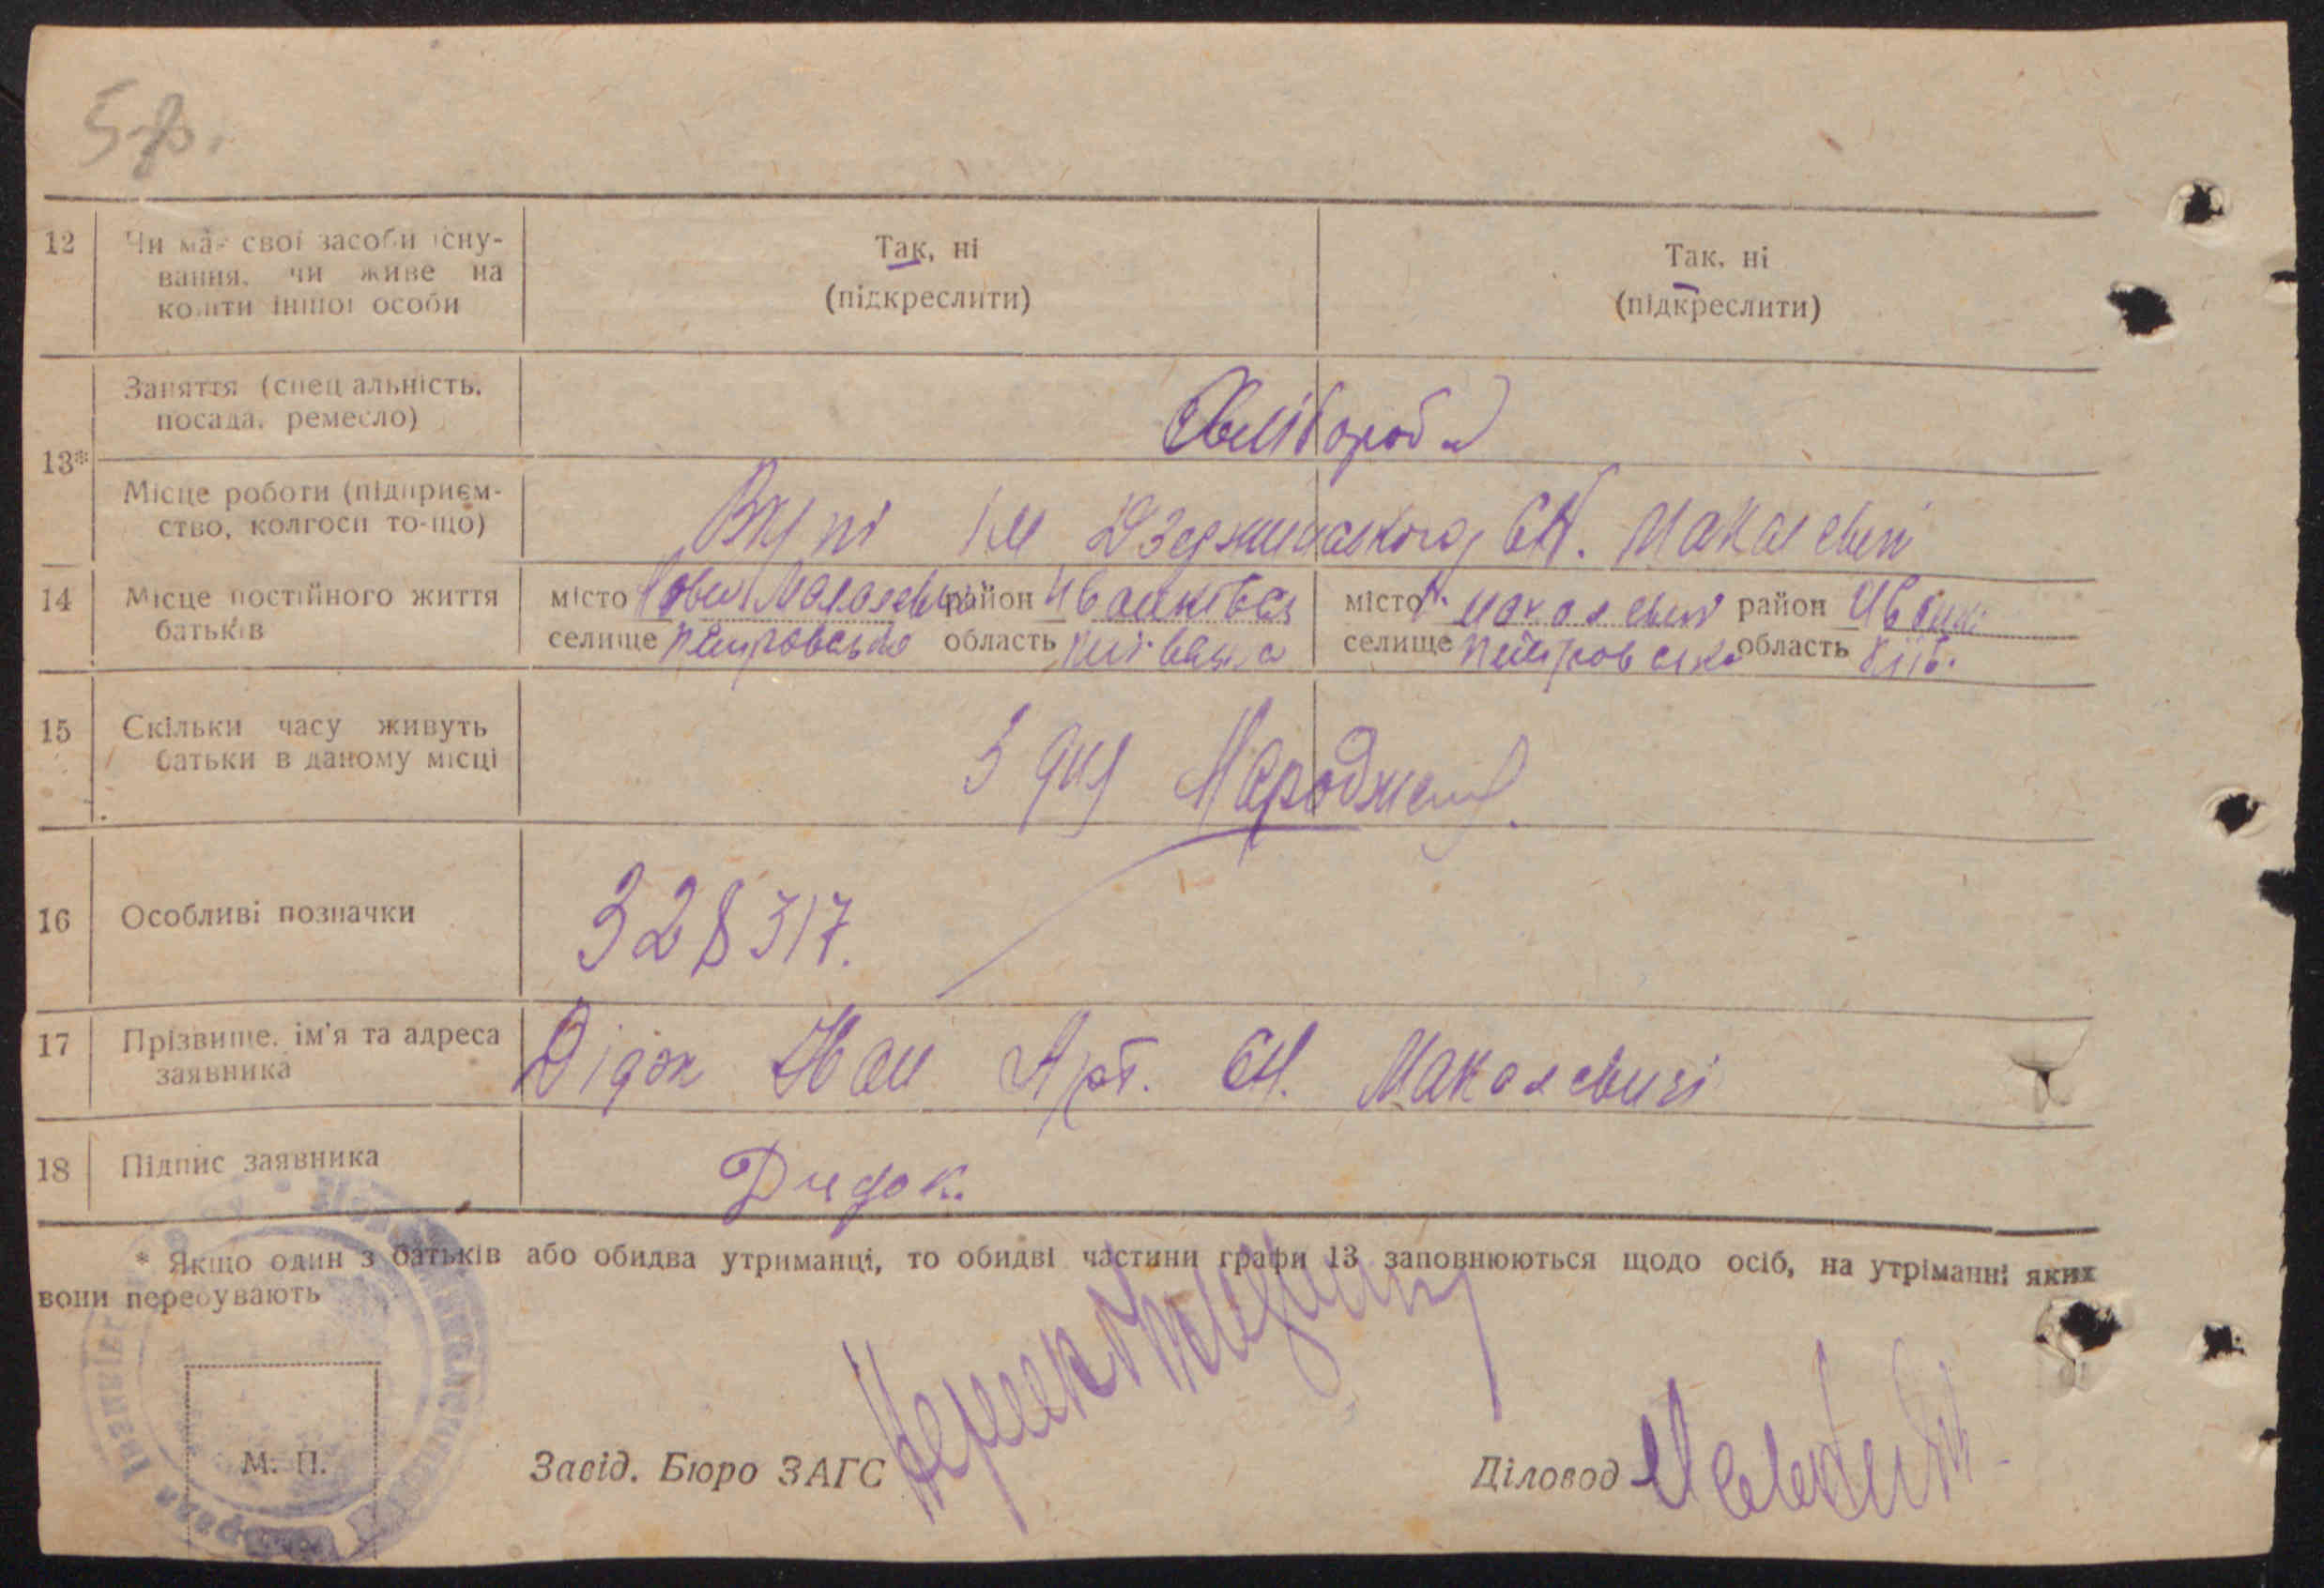 5-р.
12 Чи має свої засоби існу-
вання, чи живе на
кошти іншої особи
Так, ні
(підкреслити)
Так, ні
(підкреслити)
13*
Заняття (спеціальність,
посада, ремесло)
Хлібороби
Місце роботи (підприєм-
ство, колгосп то-що)
ім Дзержинського, с/Н. Макалевичі
14 Місце постійного життя
батьків
місто Нови Макалевичі район Іванківськ
селище Петровське область Київська
місто Н. Макалевичі район Іванк.
селище Петровське область Київ.
15 Скільки часу живуть
батьки в даному місці
З дня Народження.
16 Особливі позначки
328317.
17 Прізвище, ім'я та адреса
заявника
Дідок Іван Арт. с/Н. Макалевичі
18 Підпис заявника
Дидок.
* Якщо один з батьків або обидва утриманці, то обидві частини графи 13 заповнюються щодо осіб, на утріманні яких
вони перебувають
М. П.
Завід. Бюро ЗАГС
Діловод